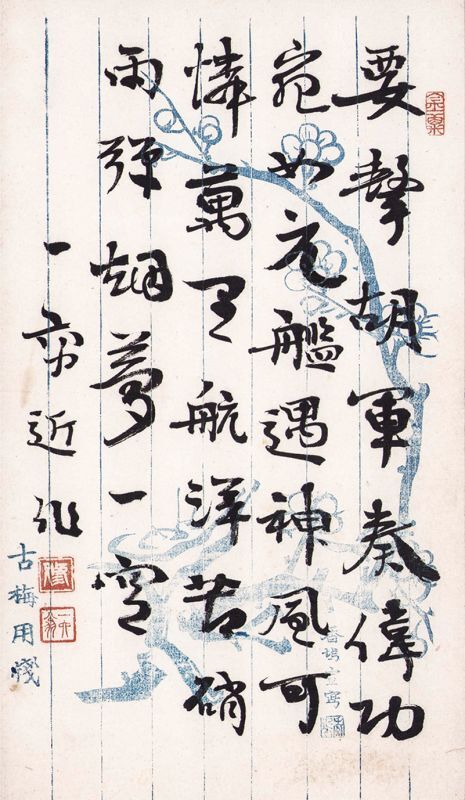 要擊胡軍奏偉功
宛如元艦遇神風可
憐萬里航洋苦硝
雨彈烟夢一空
一 近作
古梅用牋